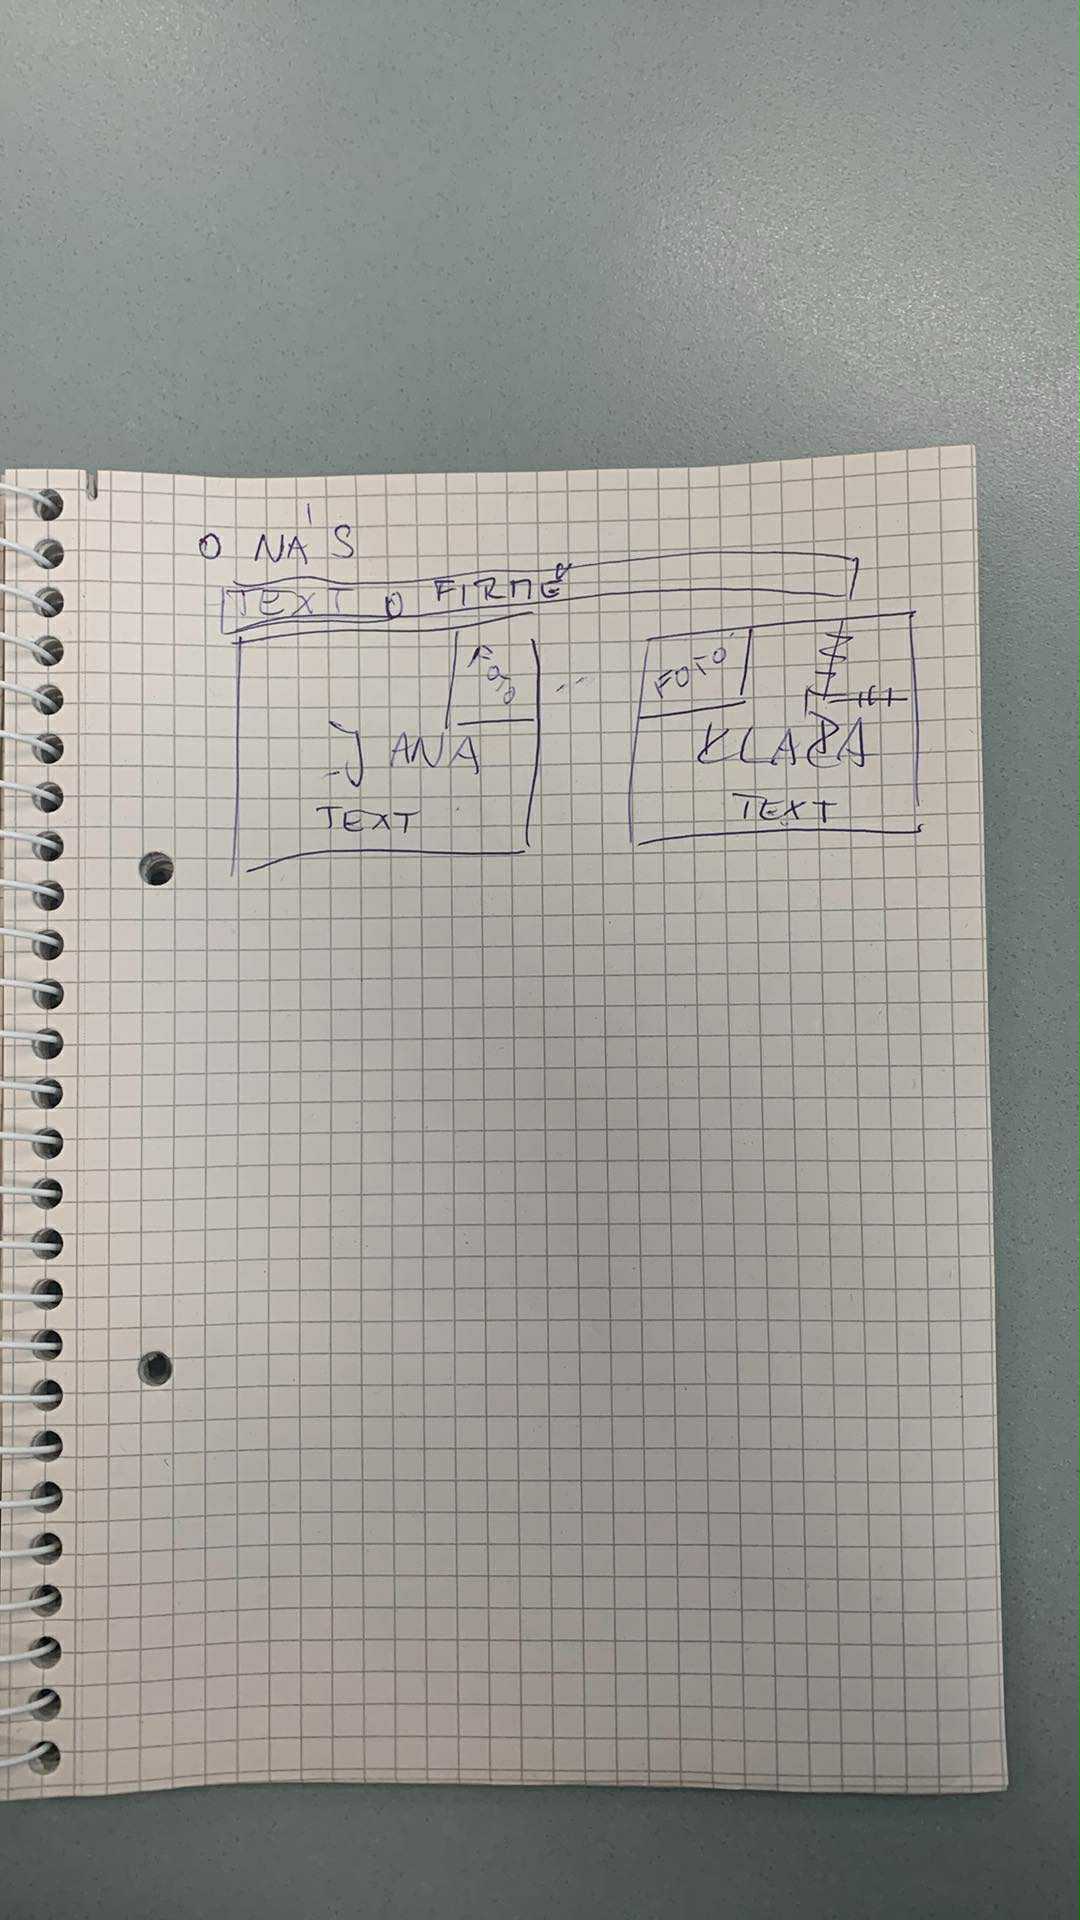 O NÁS
TEXT O FIRMĚ
FOTO
JANA
TEXT
FOTO
KLARA
TEXT